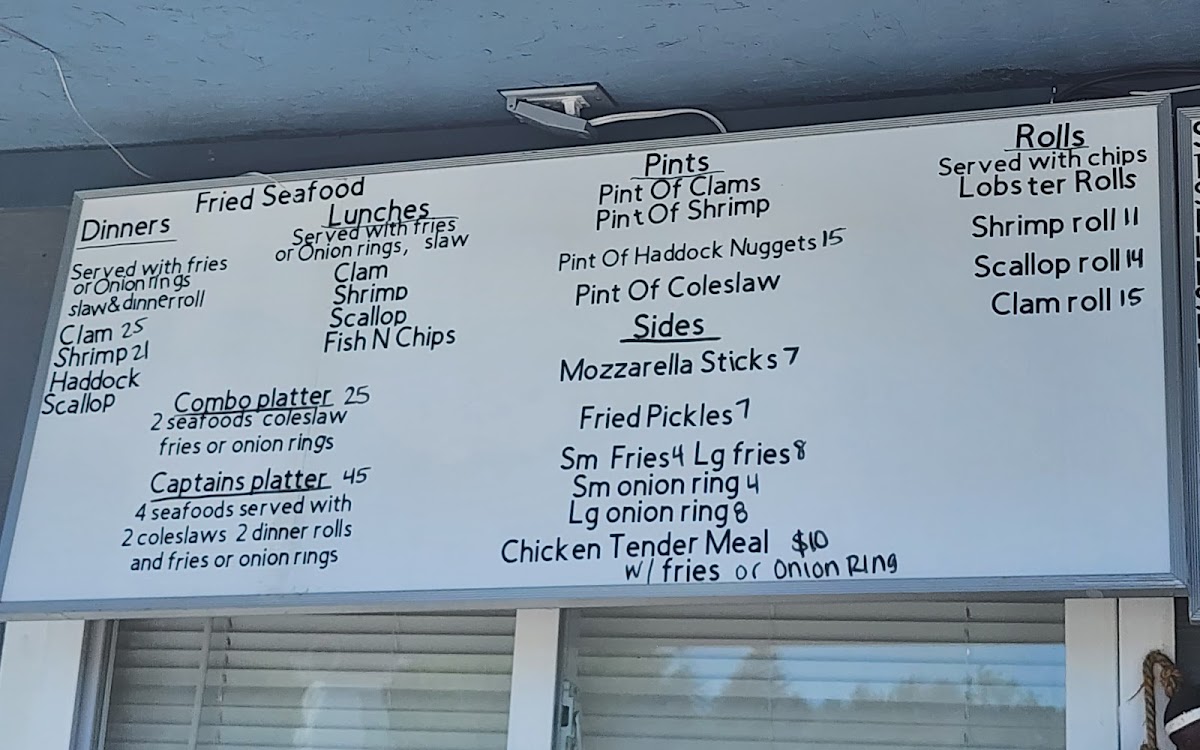 Fried Seafood
Dinners
Served with fries
or Onion rings
slaw & dinner roll
Clam 25
Shrimp 21
Haddock
Scallop
Lunches
Served with fries
or Onion rings, slaw
Clam
Shrimp
Scallop
Fish N Chips
Combo platter 25
2 seafoods coleslaw
fries or onion rings
Captains platter 45
4 seafoods served with
2 coleslaws 2 dinner rolls
and fries or onion rings
Pints
Pint Of Clams
Pint Of Shrimp
Pint Of Haddock Nuggets 15
Pint Of Coleslaw
Sides
Mozzarella Sticks 7
Fried Pickles 7
Sm Fries 4 Lg fries 8
Sm onion ring 4
Lg onion ring 8
Chicken Tender Meal $10
w/ fries or Onion Ring
Rolls
Served with chips
Lobster Rolls
Shrimp roll 11
Scallop roll 14
Clam roll 15